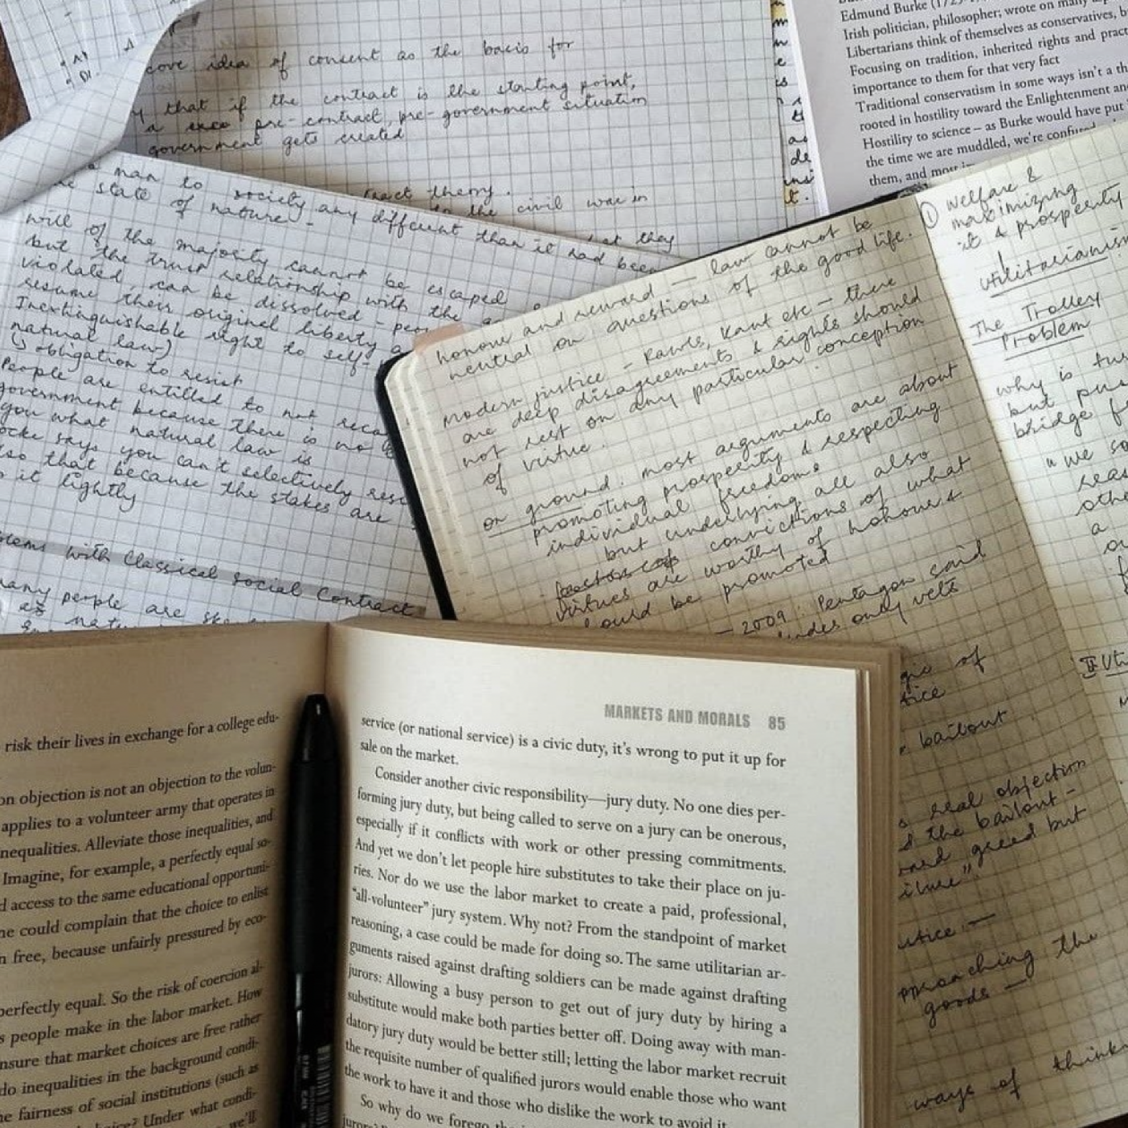 core idea of consent as the basis for
that if the contract is the starting point,
a pre-contract, pre-government situation
government gets created
theory.
the civil war in
Edmund Burke
Irish politician, philosopher; wrote on many
Libertarians think of themselves as conservatives,
Focusing on tradition, inherited rights and
importance to them for that very fact
Traditional conservatism in some ways isn't a
rooted in hostility toward the Enlightenment and
Hostility to science – as Burke would have put
the time we are muddled, we're
them, and
a man to society any different than it had been
state of nature
will of the majority cannot be escaped
but the trust relationship with the
violated, can be dissolved -
resume their original liberty
Inextinguishable right to self
natural law)
↳ obligation to resist
People are entitled to not
government because there is no
you what natural law is
says you can't selectively
that because the stakes are
it lightly
with Classical Social Contract
many people are
honour and reward — law cannot be
neutral on questions of the good life.
modern justice - Rawls, Kant etc — there
are deep disagreements & rights should
not rest on any particular conception
of virtue.
on ground: most arguments are about
promoting prosperity & respecting
individual freedoms
but underlying all also
convictions of what
virtues are worthy of honour &
should be promoted
— 2009: Pentagon said
only vets
of
bailout
real objection
the bailout -
greed but
approaching the
goods —
ways of
① welfare &
maximizing
it & prosperity
utilitarianism
The Trolley
Problem
why is
but
bridge
"we
a
risk their lives in exchange for a college edu-
on objection is not an objection to the volun-
applies to a volunteer army that operates in
inequalities. Alleviate those inequalities, and
Imagine, for example, a perfectly equal so-
access to the same educational opportuni-
could complain that the choice to enlist
free, because unfairly pressured by eco-
perfectly equal. So the risk of coercion al-
people make in the labor market. How
ensure that market choices are free rather
do inequalities in the background condi-
fairness of social institutions (such as
Under what condi-
we'll
MARKETS AND MORALS 85
service (or national service) is a civic duty, it's wrong to put it up for
sale on the market.
Consider another civic responsibility—jury duty. No one dies per-
forming jury duty, but being called to serve on a jury can be onerous,
especially if it conflicts with work or other pressing commitments.
And yet we don't let people hire substitutes to take their place on ju-
ries. Nor do we use the labor market to create a paid, professional,
"all-volunteer" jury system. Why not? From the standpoint of market
reasoning, a case could be made for doing so. The same utilitarian ar-
guments raised against drafting soldiers can be made against drafting
jurors: Allowing a busy person to get out of jury duty by hiring a
substitute would make both parties better off. Doing away with man-
datory jury duty would be better still; letting the labor market recruit
the requisite number of qualified jurors would enable those who want
the work to have it and those who dislike the work to avoid it.
So why do we forego